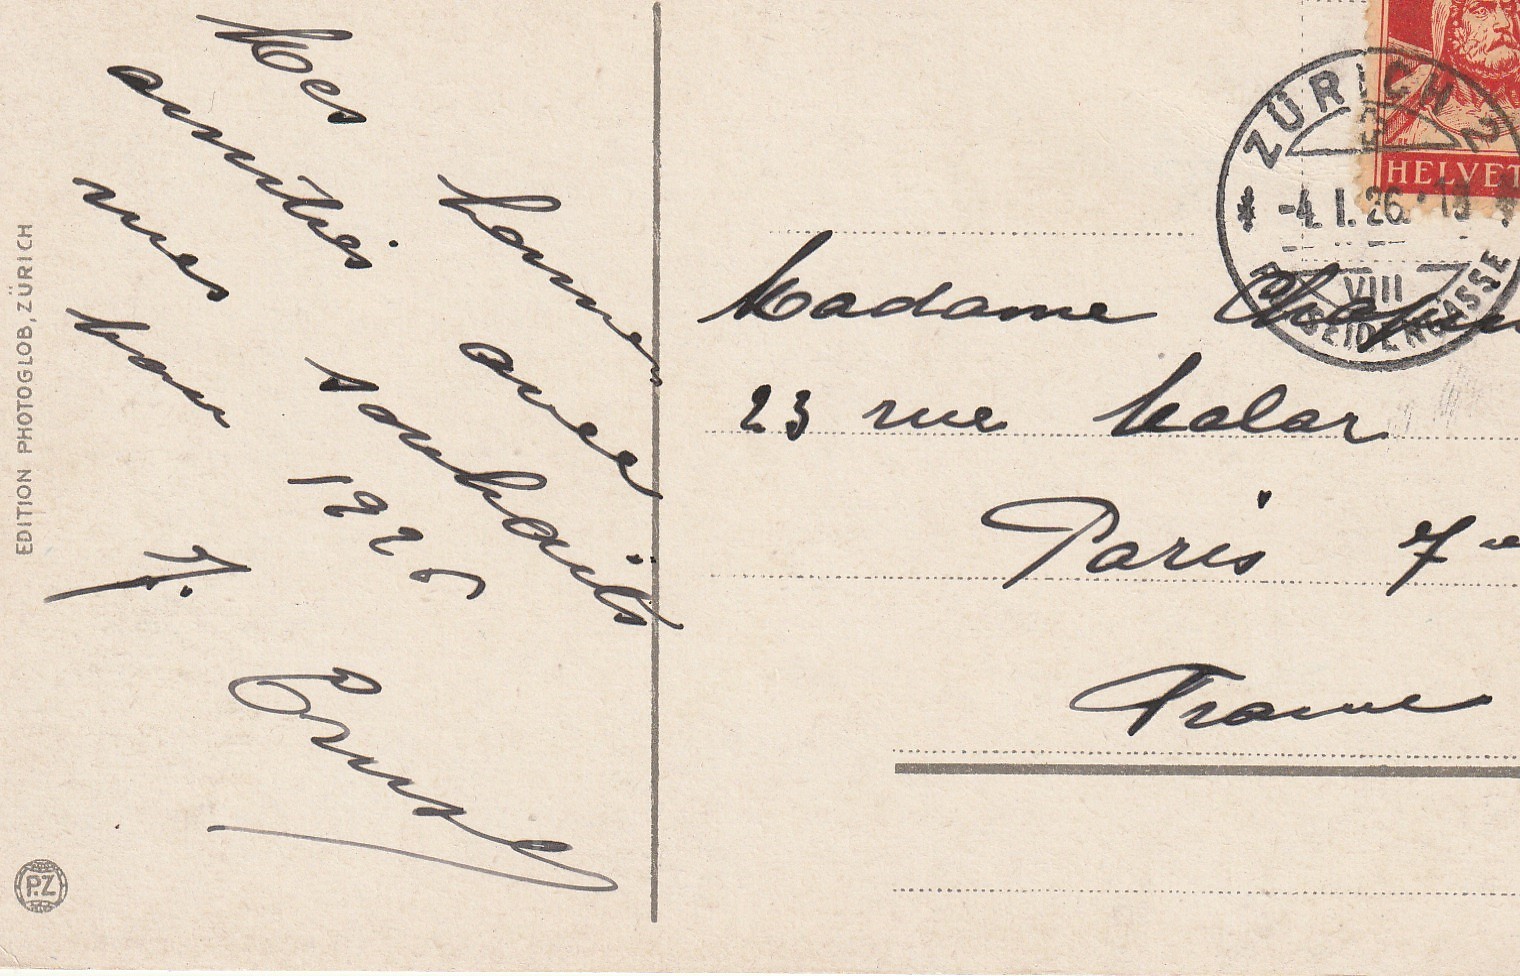 Mes bonnes
amitiés avec
mes souhaits
pour 1926
J.
EDITION PHOTOGLOB, ZÜRICH
P.Z
HELVET
ZÜRICH 2
-4.I.26.
VIII
SEIDENGASSE
Madame
23 rue Malar
Paris 7e
France